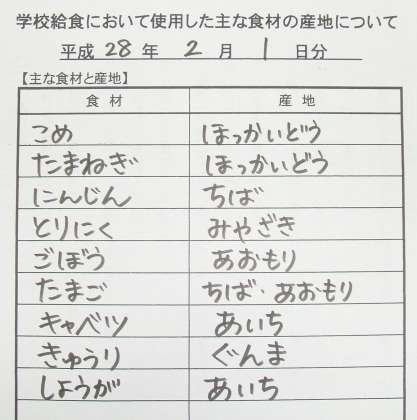 学校給食において使用した主な食材の産地について
平成 28 年 2 月 1 日分
【主な食材と産地】
食材 産地
こめ ほっかいどう
たまねぎ ほっかいどう
にんじん ちば
とりにく みやざき
ごぼう あおもり
たまご ちば・あおもり
キャベツ あいち
きゅうり ぐんま
しょうが あいち